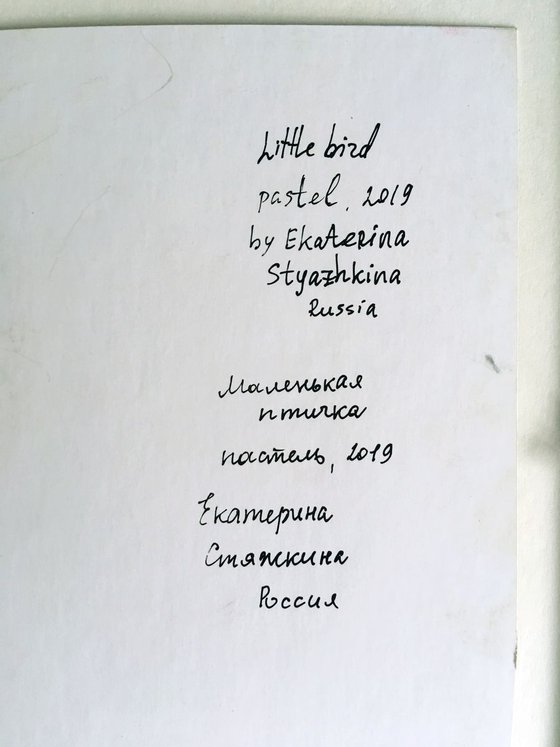 Little bird
pastel, 2019
by Ekaterina
Styazhkina
Russia
Маленькая
птичка
пастель, 2019
Екатерина
Стяжкина
Россия